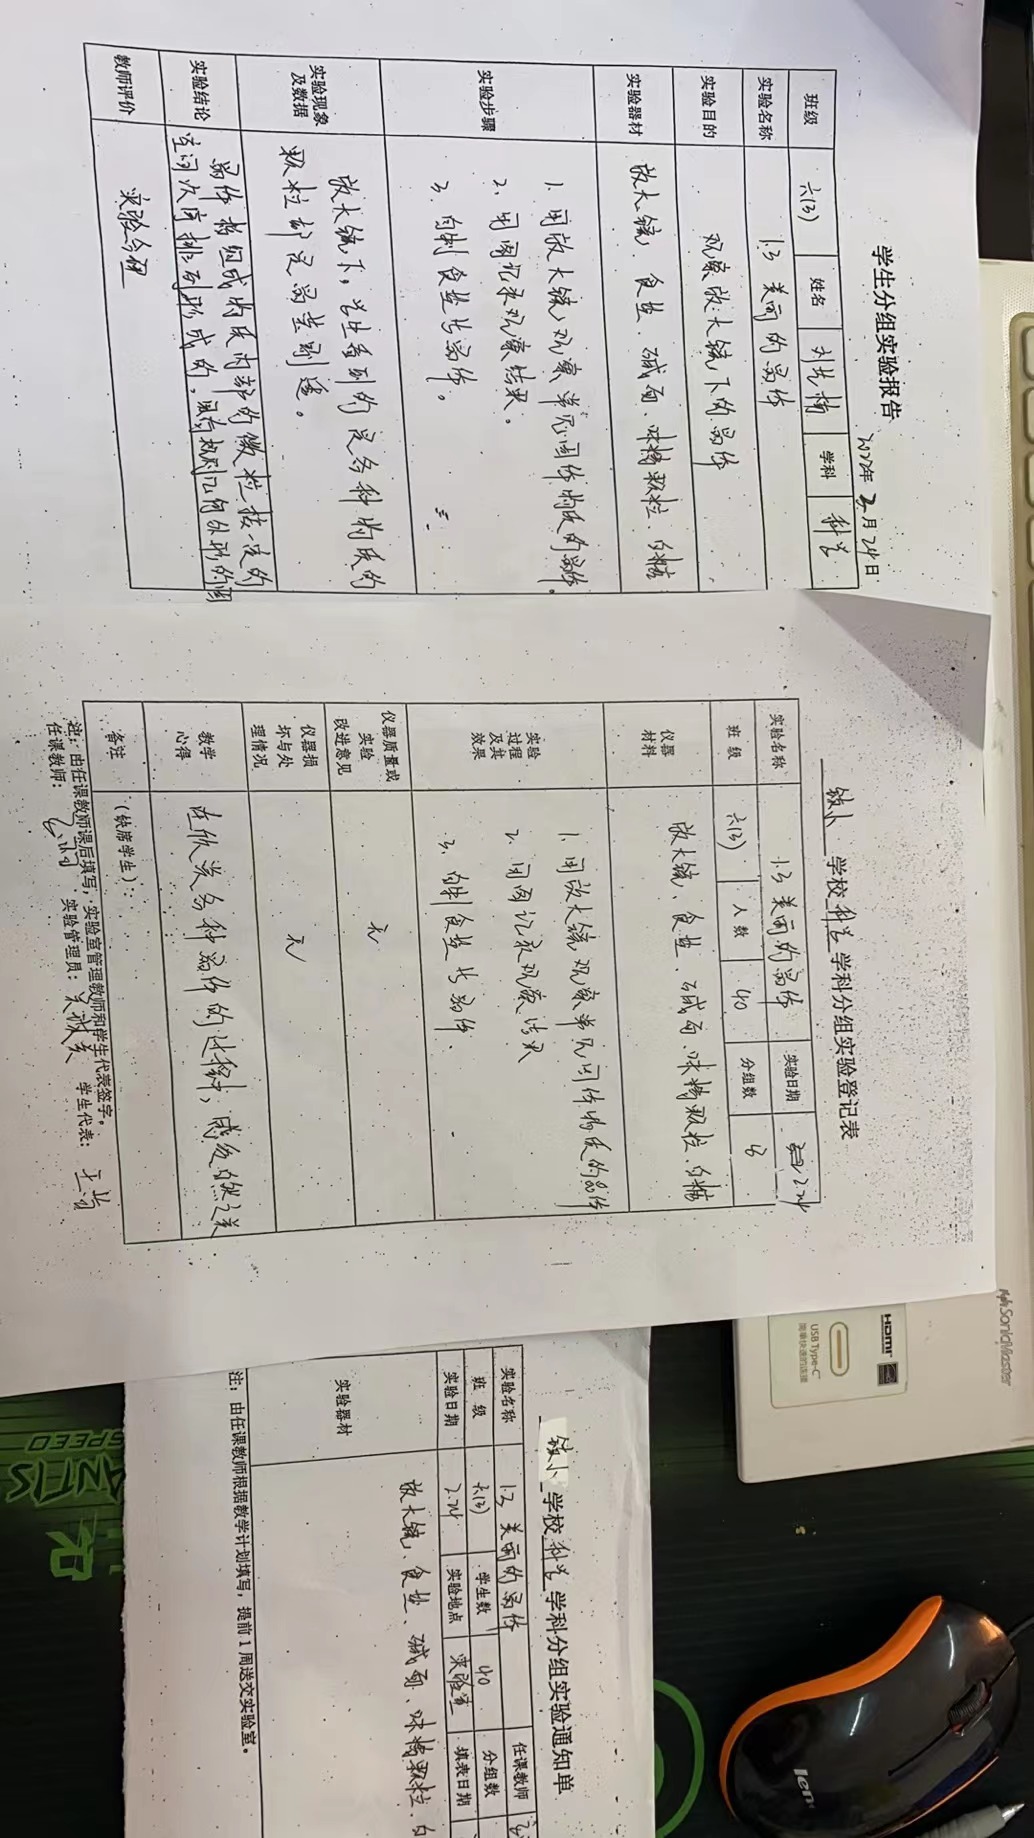 学生分组实验报告
2022年2月24日
班级 六(3) 姓名 学科 科学
实验名称 1.3 美丽的晶体
实验目的 观察放大镜下的晶体
实验器材 放大镜、食盐、碱面、味精颗粒、白糖
实验步骤
1. 用放大镜观察常见固体物质的晶体。
2、用图记录观察结果。
3、自制食盐与晶体。
实验现象及数据
放大镜下,学生看到的是各种物质的
颗粒却是晶莹剔透。
实验结论
晶体将组成物质内部的微粒按一定的
空间次序排列形成的,具有规则几何外形的固
教师评价 实验合理
镇小 学校 科学 学科分组实验登记表
实验名称 1.3 美丽的晶体 实验日期 2.24
班 级 六(3) 人 数 40 分组数 6
仪器材料 放大镜、食盐、碱面、味精颗粒、白糖
实验过程及其效果
1. 用放大镜观察常见固体物质的晶体
2、用图记录观察结果
3、自制食盐与晶体.
仪器质量或实验改进意见 无
仪器损坏与处理情况 无
教学心得 在欣赏各种晶体的过程中,感受自然之美
备注 (缺席学生):
注:由任课教师课后填写,实验室管理教师和学生代表签字。
任课教师: 实验管理员: 学生代表:
镇小 学校 科学 学科分组实验通知单
实验名称 1.3 美丽的晶体 任课教师
班 级 六(3) 学生数 40 分组数
实验日期 2.24 实验地点 实验室 填表日期
实验器材 放大镜、食盐、碱面、味精颗粒、白
注:由任课教师根据教学计划填写,提前1周送交实验室。
SonicMaster
HDMI
USB Type-C
简单快速的连接
ANTIS
SPEED
len